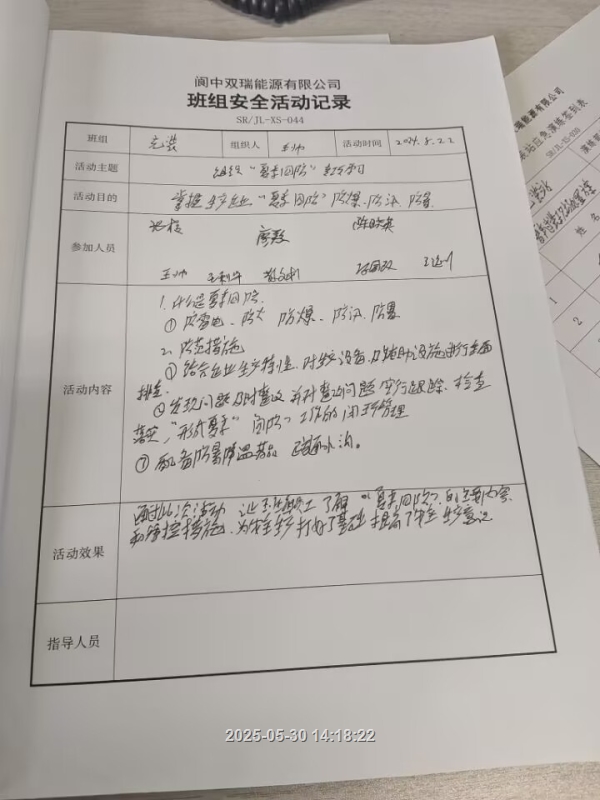 阆中双瑞能源有限公司
班组安全活动记录
SR/JL-XS-044
班组 充装 组织人 王帅 活动时间 2024.5.22
活动主题 组织"夏季四防"专题学习
活动目的 掌握生产企业"夏季四防"防爆、防汛、防暑
参加人员
王帅
活动内容
1.什么是夏季四防
① 防雷电、防火 防爆、防汛、防暑
2.防范措施
① 结合企业生产特性,对生产设备、及辅助设施进行全面
排查
② 发现问题及时整改 并对整改问题实行跟踪、检查
落实,形成夏季"四防"工作的闭环管理
③ 配备防暑降温药品 疏通水沟。
活动效果
通过此次活动 让全体职工了解"夏季四防"的主要内容
和管控措施,为安全生产打好了基础 提高了安全生产意识
指导人员
双瑞能源有限公司
应急演练签到表
SR/JL-XS-020
姓名
1
2
2025-05-30 14:18:22